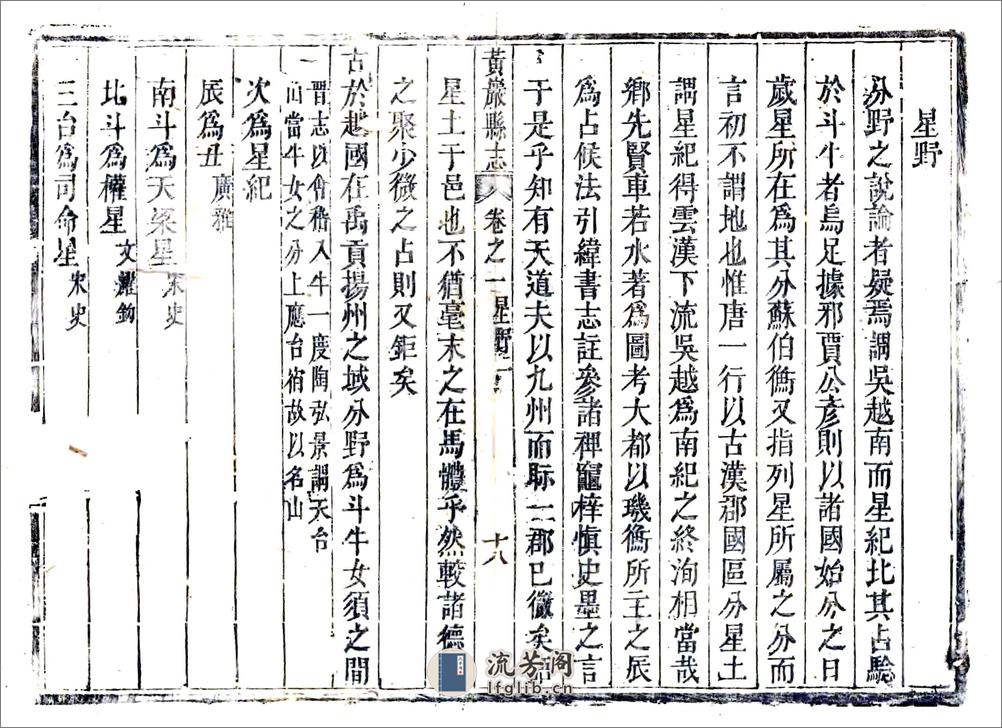 星野
分野之說論者疑焉謂吳越南而星紀北其占驗
於斗牛者烏足據邪賈公彥則以諸國始分之日
歲星所在爲其分蘇伯衡又指列星所屬之分而
言初不謂地也惟唐一行以古漢郡國區分星土
謂星紀得雲漢下流吳越爲南紀之終洵相當哉
鄉先賢車若水著爲圖考大都以璣衡所主之辰
爲占候法引緯書志註參諸禆竈梓愼史墨之言
于是乎知有天道夫以九州而眎一郡已微矣
黃巖縣志 卷之一 星野 十八
星土于邑也不猶毫末之在馬體乎然較諸德
之聚少微之占則又鉅矣
古於越國在禹貢揚州之域分野爲斗牛女須之間
晉志以會稽入牛一度陶弘景謂天台
山當牛女之分上應台宿故以名山
次爲星紀
辰爲丑 廣雅
南斗爲天梁星 宋史
北斗爲權星 文耀鉤
三台爲司命星 宋史
流芳阁
lfglib.cn